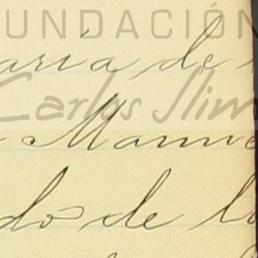 UNDACIÓN
aría de
Carlos Slim
Manu
do de l